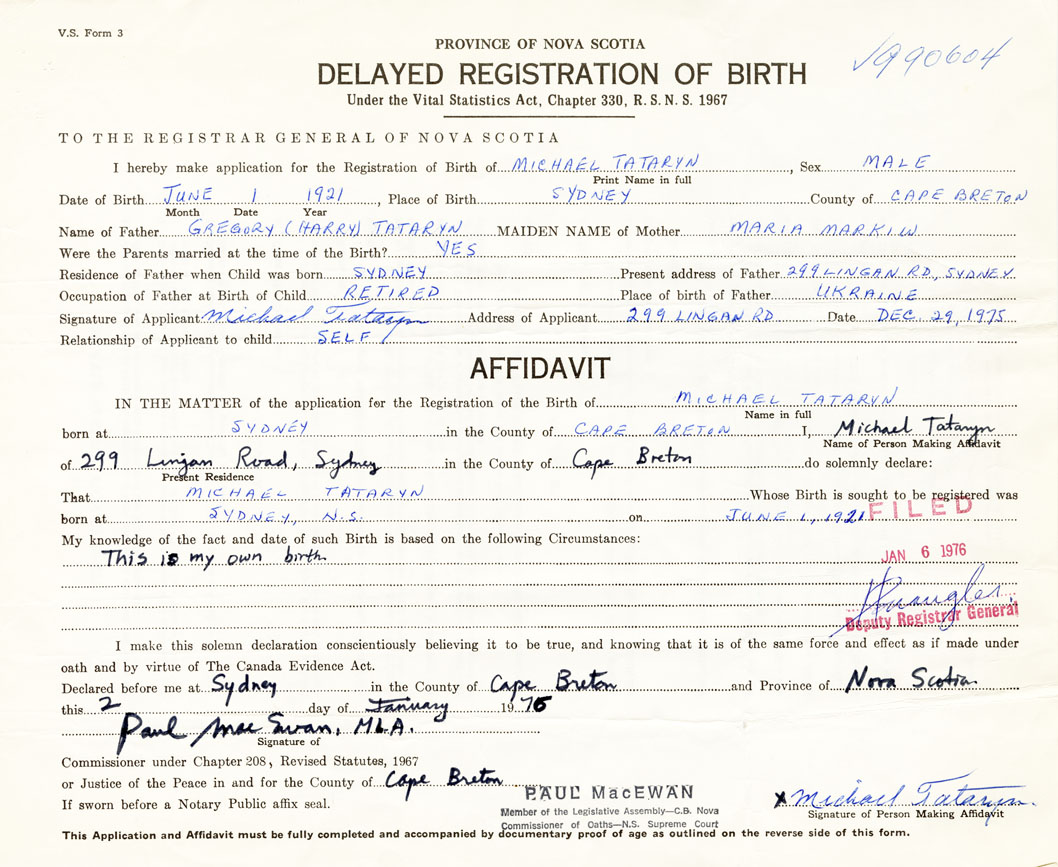 V.S. Form 3
PROVINCE OF NOVA SCOTIA
990604
DELAYED REGISTRATION OF BIRTH
Under the Vital Statistics Act, Chapter 330, R.S.N.S. 1967
TO THE REGISTRAR GENERAL OF NOVA SCOTIA
I hereby make application for the Registration of Birth of MICHAEL TATARYN, Sex MALE
Print Name in full
Date of Birth JUNE 1 1921, Place of Birth SYDNEY County of CAPE BRETON
Month Date Year
Name of Father GREGORY (HARRY) TATARYN MAIDEN NAME of Mother MARIA MARKIW
Were the Parents married at the time of the Birth? YES
Residence of Father when Child was born SYDNEY Present address of Father 299 LINGAN RD, SYDNEY
Occupation of Father at Birth of Child RETIRED Place of birth of Father UKRAINE
Signature of Applicant Michael Tataryn Address of Applicant 299 LINGAN RD Date DEC. 29, 1975
Relationship of Applicant to child SELF
AFFIDAVIT
IN THE MATTER of the application for the Registration of the Birth of MICHAEL TATARYN
Name in full
born at SYDNEY in the County of CAPE BRETON I, Michael Tataryn
Name of Person Making Affidavit
of 299 Lingan Road, Sydney in the County of Cape Breton do solemnly declare:
Present Residence
That MICHAEL TATARYN Whose Birth is sought to be registered was
born at SYDNEY, N.S. on JUNE 1, 1921
FILED
My knowledge of the fact and date of such Birth is based on the following Circumstances:
This is my own birth
JAN 6 1976
Deputy Registrar General
I make this solemn declaration conscientiously believing it to be true, and knowing that it is of the same force and effect as if made under
oath and by virtue of The Canada Evidence Act.
Declared before me at Sydney in the County of Cape Breton and Province of Nova Scotia
this 2 day of January 1976
Paul MacEwan, MLA.
Signature of
Commissioner under Chapter 208, Revised Statutes, 1967
or Justice of the Peace in and for the County of Cape Breton
If sworn before a Notary Public affix seal.
PAUL MacEWAN
Member of the Legislative Assembly—C.B. Nova
Commissioner of Oaths—N.S. Supreme Court
x Michael Tataryn
Signature of Person Making Affidavit
This Application and Affidavit must be fully completed and accompanied by documentary proof of age as outlined on the reverse side of this form.